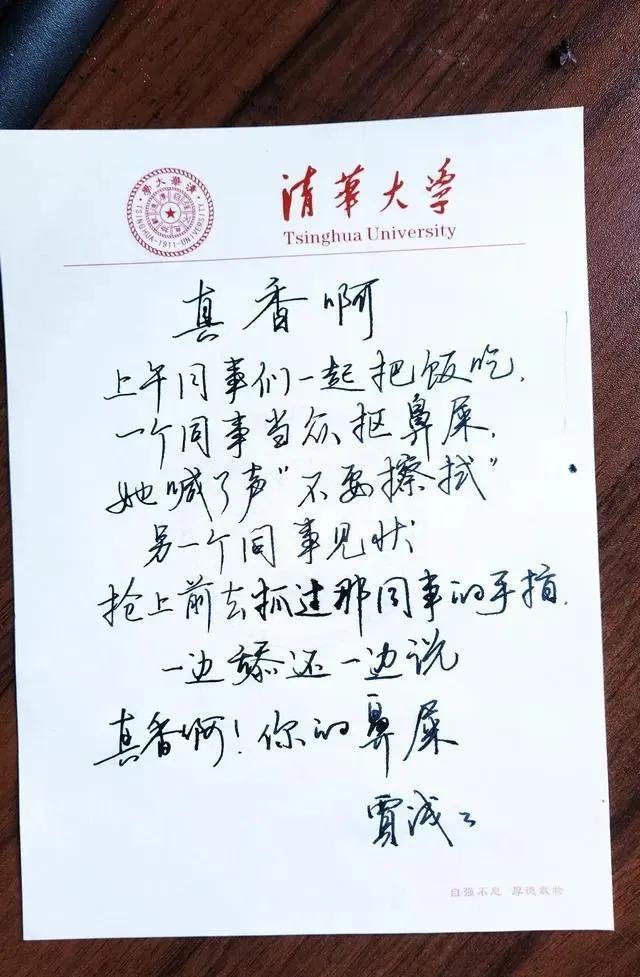 清華大學
TSINGHUA-1911-UNIVERSITY
清华大学
Tsinghua University
真香啊
上午同事们一起把饭吃,
一个同事当众抠鼻屎,
她喊了声“不要擦拭”
另一个同事见状
抢上前去抓过那同事的手指,
一边舔还一边说
真香啊!你的鼻屎
贾浅浅
自强不息 厚德载物